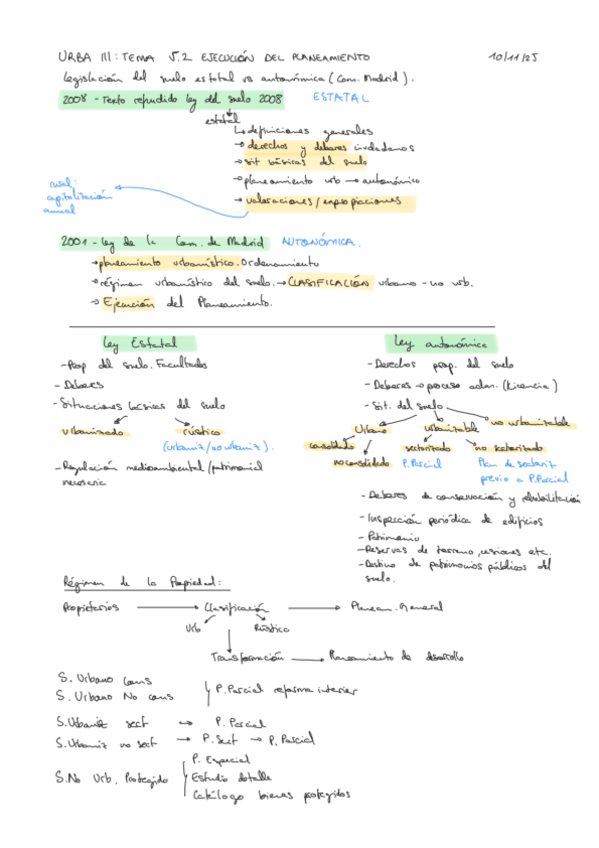 URBA III: TEMA 5.2 EJECUCIÓN DEL PLANEAMIENTO 10/11/25
Legislación del suelo estatal vs autonómica (Com. Madrid).
2008 - Texto refundido ley del suelo 2008 ESTATAL
estatal
↳ definiciones generales
→ derechos y deberes ciudadanos
→ sit básicas del suelo
→ planeamiento urb → autonómico
→ valoraciones / expropiaciones
rural:
capitalización
anual
2001 - Ley de la Com. de Madrid AUTONÓMICA.
→ planeamiento urbanístico. Ordenamiento
→ régimen urbanístico del suelo. → CLASIFICACIÓN urbano - no urb.
→ Ejecución del Planeamiento.
Ley Estatal
- Prop del suelo. Facultades
- Deberes
- Situaciones básicas del suelo
urbanizado rústico
(urbaniz/no urbaniz).
- Regulación medioambiental / patrimonial
necesaria
Ley autonómica
- Derechos prop. del suelo
- Deberes → proceso adm. (Licencia)
- Sit. del suelo
Urbano urbanizable no urbanizable
consolidado sectorizado no sectorizado
no consolidado P. Parcial Plan de sectoriz
previo a P. Parcial
- Deberes de conservación y rehabilitación
- Inspección periódica de edificios
- Patrimonio
- Reservas de terreno, cesiones etc.
- Destino de patrimonios públicos del
suelo.
Régimen de la Propiedad:
Propietarios → Clasificación → Planeam. General
Urb Rústico
Transformación → Planeamiento de desarrollo
S. Urbano Cons
S. Urbano No cons P. Parcial reforma interior
S. Urbaniz sect → P. Parcial
S. Urbaniz no sect → P. Sect → P. Parcial
S. No Urb. Protegido P. Especial
Estudio detalle
Catálogo bienes protegidos